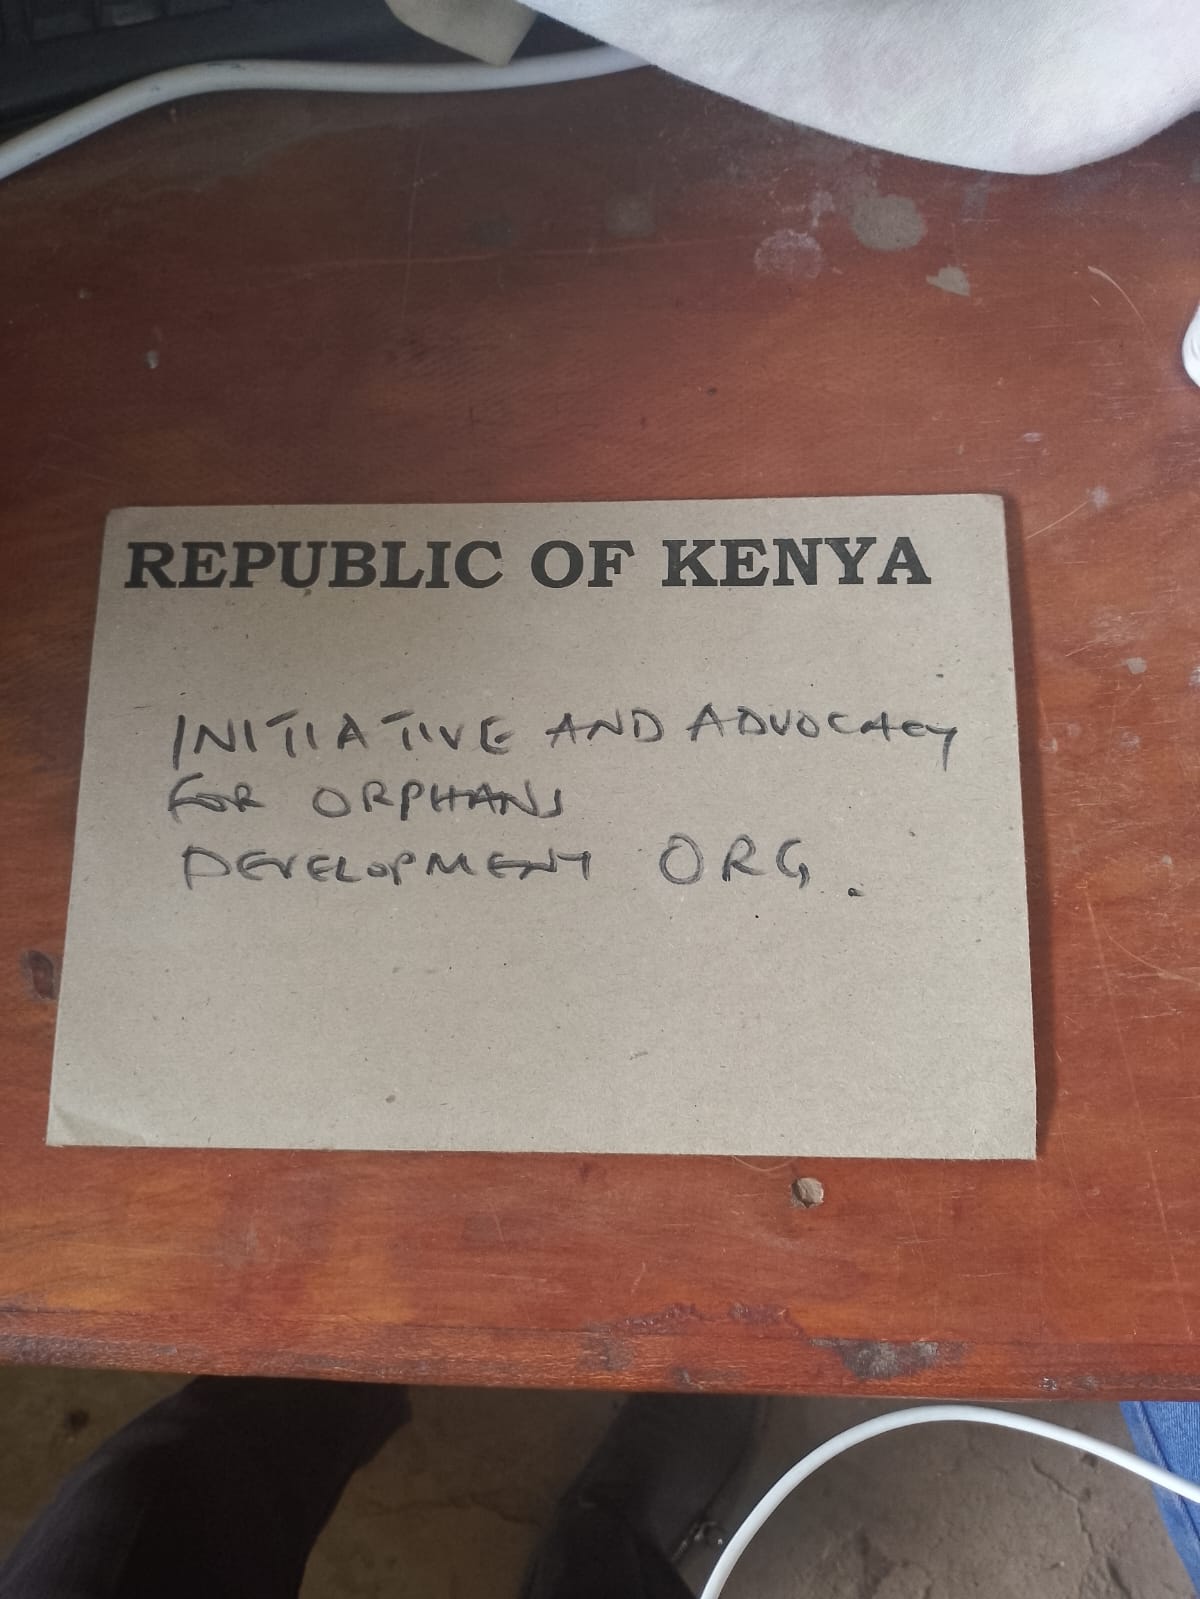 REPUBLIC OF KENYA
INITIATIVE AND ADVOCACY
FOR ORPHANS
DEVELOPMENT ORG.